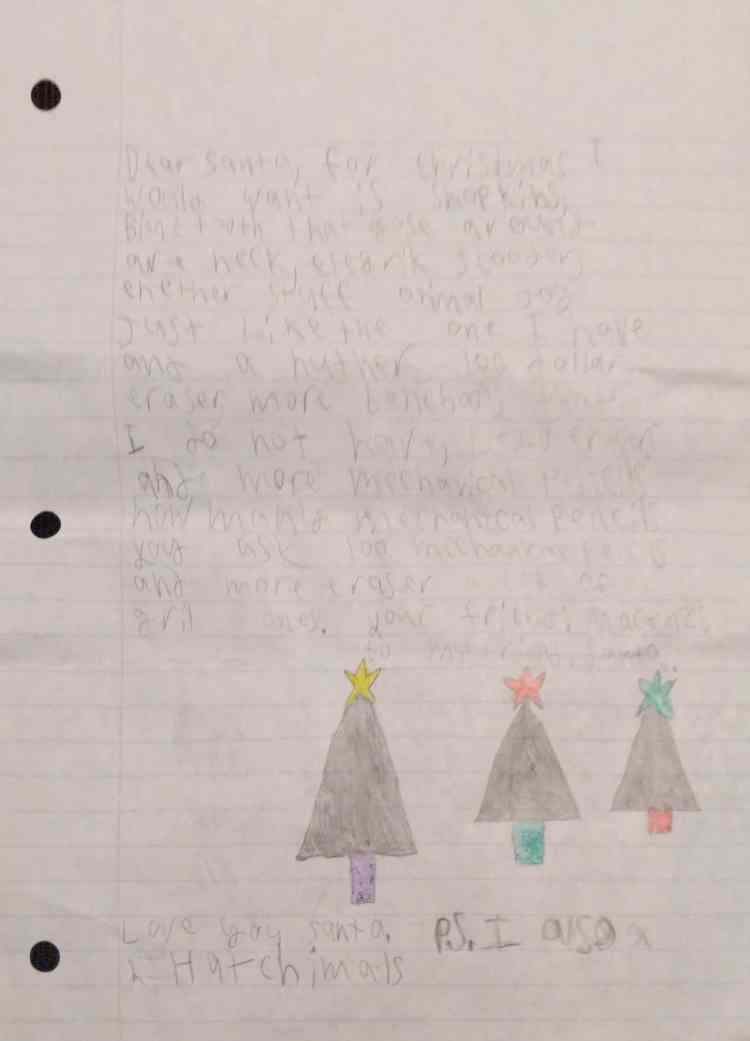 Dear Santa, for christmas I
would want is shopkins,
Bluetooth that gose around
are neck, scooter,
enether stuff animal dog
Just Like the one I have
and a nuther 100 dollar
eraser more
I do not have,
and more mechanical pencil
how many mechanical pencil
you ask 100 mechanical
and more eraser a lot of
gril ones. your friend,
to my friend, santa.
Love you santa. P.S. I also
Hatchimals